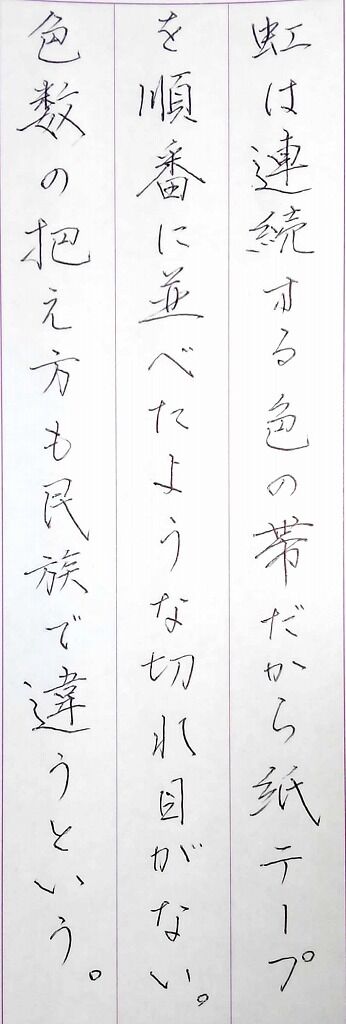 虹は連続する色の帯だから紙テープ
を順番に並べたような切れ目がない。
色数の把え方も民族で違うという。